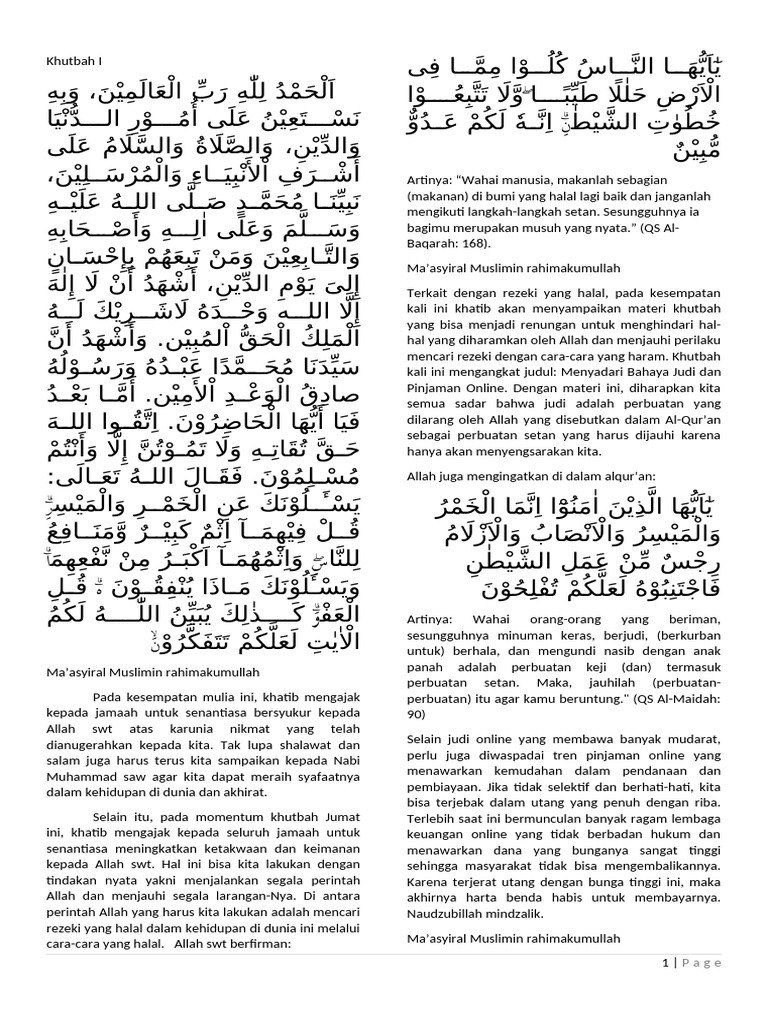 Khutbah I
اَلْحَمْدُ لِلّٰهِ رَبِّ الْعَالَمِيْنَ، وَبِهِ
نَسْتَعِيْنُ عَلَى أُمُوْرِ الدُّنْيَا
وَالدِّيْنِ، وَالصَّلَاةُ وَالسَّلَامُ عَلَى
أَشْرَفِ الْأَنْبِيَاءِ وَالْمُرْسَلِيْنَ،
نَبِيِّنَا مُحَمَّدٍ صَلَّى اللهُ عَلَيْهِ
وَسَلَّمَ وَعَلَى اٰلِهِ وَأَصْحَابِهِ
وَالتَّابِعِيْنَ وَمَنْ تَبِعَهُمْ بِإِحْسَانٍ
إِلىَ يَوْمِ الدِّيْنِ، أَشْهَدُ أَنْ لَا إِلٰهَ
إِلَّا اللهَ وَحْدَهُ لَاشَرِيْكَ لَهُ
الْمَلِكُ الْحَقُّ اْلمُبِيْن. وَأَشْهَدُ أَنَّ
سَيِّدَنَا مُحَمَّدًا عَبْدُهُ وَرَسُوْلُهُ
صادِقُ الْوَعْدِ الْأَمِيْن. أَمَّا بَعْدُ
فَيَا أَيُّهَا الْحَاضِرُوْنَ. اِتَّقُوا اللهَ
حَقَّ تُقَاتِهِ وَلَا تَمُوْتُنَّ إِلَّا وَأَنْتُمْ
مُسْلِمُوْنَ. فَقَالَ اللهُ تَعَالَى:
يَسْـَٔلُوْنَكَ عَنِ الْخَمْرِ وَالْمَيْسِرِۗ
قُلْ فِيْهِمَآ اِثْمٌ كَبِيْرٌ وَّمَنَافِعُ
لِلنَّاسِۖ وَاِثْمُهُمَآ اَكْبَرُ مِنْ نَّفْعِهِمَاۗ
وَيَسْـَٔلُوْنَكَ مَاذَا يُنْفِقُوْنَ ەۗ قُلِ
الْعَفْوَۗ كَذٰلِكَ يُبَيِّنُ اللّٰهُ لَكُمُ
الْاٰيٰتِ لَعَلَّكُمْ تَتَفَكَّرُوْنَۙ
Ma'asyiral Muslimin rahimakumullah
Pada kesempatan mulia ini, khatib mengajak
kepada jamaah untuk senantiasa bersyukur kepada
Allah swt atas karunia nikmat yang telah
dianugerahkan kepada kita. Tak lupa shalawat dan
salam juga harus terus kita sampaikan kepada Nabi
Muhammad saw agar kita dapat meraih syafaatnya
dalam kehidupan di dunia dan akhirat.
Selain itu, pada momentum khutbah Jumat
ini, khatib mengajak kepada seluruh jamaah untuk
senantiasa meningkatkan ketakwaan dan keimanan
kepada Allah swt. Hal ini bisa kita lakukan dengan
tindakan nyata yakni menjalankan segala perintah
Allah dan menjauhi segala larangan-Nya. Di antara
perintah Allah yang harus kita lakukan adalah mencari
rezeki yang halal dalam kehidupan di dunia ini melalui
cara-cara yang halal. Allah swt berfirman:
يٰٓاَيُّهَا النَّاسُ كُلُوْا مِمَّا فِى
الْاَرْضِ حَلٰلًا طَيِّبًاۖ وَّلَا تَتَّبِعُوْا
خُطُوٰتِ الشَّيْطٰنِۗ اِنَّهٗ لَكُمْ عَدُوٌّ
مُّبِيْنٌ
Artinya: “Wahai manusia, makanlah sebagian
(makanan) di bumi yang halal lagi baik dan janganlah
mengikuti langkah-langkah setan. Sesungguhnya ia
bagimu merupakan musuh yang nyata.” (QS Al-
Baqarah: 168).
Ma’asyiral Muslimin rahimakumullah
Terkait dengan rezeki yang halal, pada kesempatan
kali ini khatib akan menyampaikan materi khutbah
yang bisa menjadi renungan untuk menghindari hal-
hal yang diharamkan oleh Allah dan menjauhi perilaku
mencari rezeki dengan cara-cara yang haram. Khutbah
kali ini mengangkat judul: Menyadari Bahaya Judi dan
Pinjaman Online. Dengan materi ini, diharapkan kita
semua sadar bahwa judi adalah perbuatan yang
dilarang oleh Allah yang disebutkan dalam Al-Qur'an
sebagai perbuatan setan yang harus dijauhi karena
hanya akan menyengsarakan kita.
Allah juga mengingatkan di dalam alqur'an:
يٰٓاَيُّهَا الَّذِيْنَ اٰمَنُوْٓا اِنَّمَا الْخَمْرُ
وَالْمَيْسِرُ وَالْاَنْصَابُ وَالْاَزْلَامُ
رِجْسٌ مِّنْ عَمَلِ الشَّيْطٰنِ
فَاجْتَنِبُوْهُ لَعَلَّكُمْ تُفْلِحُوْنَ
Artinya: Wahai orang-orang yang beriman,
sesungguhnya minuman keras, berjudi, (berkurban
untuk) berhala, dan mengundi nasib dengan anak
panah adalah perbuatan keji (dan) termasuk
perbuatan setan. Maka, jauhilah (perbuatan-
perbuatan) itu agar kamu beruntung." (QS Al-Maidah:
90)
Selain judi online yang membawa banyak mudarat,
perlu juga diwaspadai tren pinjaman online yang
menawarkan kemudahan dalam pendanaan dan
pembiayaan. Jika tidak selektif dan berhati-hati, kita
bisa terjebak dalam utang yang penuh dengan riba.
Terlebih saat ini bermunculan banyak ragam lembaga
keuangan online yang tidak berbadan hukum dan
menawarkan dana yang bunganya sangat tinggi
sehingga masyarakat tidak bisa mengembalikannya.
Karena terjerat utang dengan bunga tinggi ini, maka
akhirnya harta benda habis untuk membayarnya.
Naudzubillah mindzalik.
Ma’asyiral Muslimin rahimakumullah
1 | Page